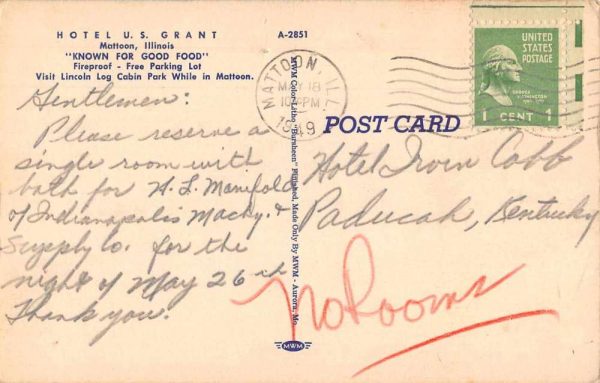 HOTEL U.S. GRANT
Mattoon, Illinois
"KNOWN FOR GOOD FOOD"
Fireproof - Free Parking Lot
Visit Lincoln Log Cabin Park While in Mattoon.
A-2851
MATTOON, ILL.
MAY 18
PM
1949
UNITED
STATES
POSTAGE
GEORGE
WASHINGTON
1 CENT 1
POST CARD
Gentlemen:
Please reserve a
single room with
bath for H. L. Manifold
of Indianapolis Machy. &
Supply Co. for the
night of May 26th
Thank you.
Hotel Irvin Cobb
Paducah, Kentucky
No Rooms
MWM Color-Litho "Bursheen" Finished, Made Only By MWM - Aurora, Mo.
MWM